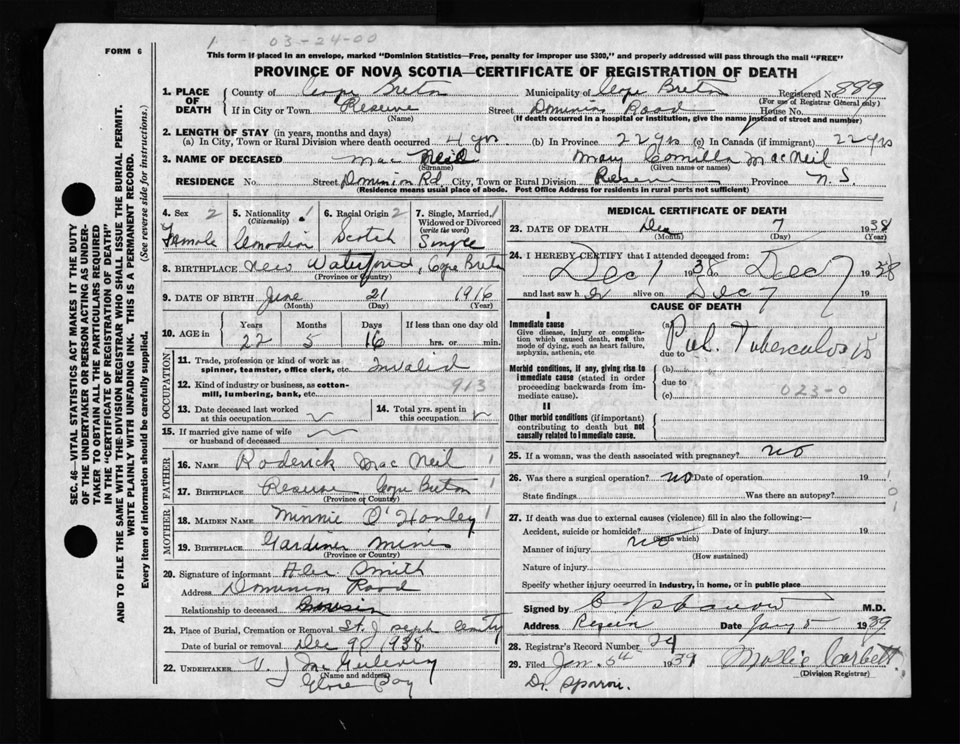 1 03-24-00
FORM 6
This form if placed in an envelope, marked "Dominion Statistics—Free, penalty for improper use $300," and properly addressed will pass through the mail "FREE"
PROVINCE OF NOVA SCOTIA—CERTIFICATE OF REGISTRATION OF DEATH
1. PLACE OF DEATH County of Cape Breton Municipality of Cape Breton Registered No. 889
(For use of Registrar General only)
If in City or Town Reserve Street Dominion Road House No.
(Name) (If death occurred in a hospital or institution, give the name instead of street and number)
2. LENGTH OF STAY (in years, months and days)
(a) In City, Town or Rural Division where death occurred 4 yrs (b) in Province 22 yrs (c) in Canada (if immigrant) 22 yrs
3. NAME OF DECEASED Mac Neil Mary Camilla MacNeil
(Surname) (Given name or names)
RESIDENCE No. Street Dominion Rd. City, Town or Rural Division Reserve Province N. S.
(Residence means usual place of abode. Post Office Address for residents in rural parts not sufficient)
SEC. 46—VITAL STATISTICS ACT MAKES IT THE DUTY
OF THE UNDERTAKER OR PERSON ACTING AS UNDER-
TAKER TO OBTAIN ALL THE PARTICULARS REQUIRED
IN THE "CERTIFICATE OF REGISTRATION OF DEATH"
AND TO FILE THE SAME WITH THE DIVISION REGISTRAR WHO SHALL ISSUE THE BURIAL PERMIT.
WRITE PLAINLY WITH UNFADING INK. THIS IS A PERMANENT RECORD.
Every item of information should be carefully supplied. (See reverse side for instructions.)
4. Sex 2 5. Nationality 1 6. Racial Origin 2 7. Single, Married, 1
(Citizenship) Widowed or Divorced
(write the word)
Female Canadian Scotch Single
8. BIRTHPLACE New Waterford, Cape Breton
(Province or Country)
9. DATE OF BIRTH June 21 1916
(Month) (Day) (Year)
10. AGE in Years Months Days If less than one day old
22 5 16 hrs. or min.
OCCUPATION
11. Trade, profession or kind of work as
spinner, teamster, office clerk, etc. Invalid
12. Kind of industry or business, as cotton- 913
mill, lumbering, bank, etc.
13. Date deceased last worked 14. Total yrs. spent in
at this occupation this occupation
15. If married give name of wife
or husband of deceased
FATHER
16. NAME Roderick Mac Neil 1
17. BIRTHPLACE Reserve Cape Breton 1
(Province or Country)
MOTHER
18. MAIDEN NAME Minnie O'Hanley 1
19. BIRTHPLACE Gardiner Mines
(Province or Country)
20. Signature of informant Alex. Smith
Address Dominion Road
Relationship to deceased Cousin
21. Place of Burial, Cremation or Removal St. Joseph
Date of burial or removal Dec 9, 1938
22. UNDERTAKER V. J.
(Name and address)
Glace Bay
MEDICAL CERTIFICATE OF DEATH
23. DATE OF DEATH Dec 7 1938
(Month) (Day) (Year)
24. I HEREBY CERTIFY that I attended deceased from:
Dec 1 1938 to Dec 7 1938
and last saw her alive on Dec 7 19
CAUSE OF DEATH
I
Immediate cause (a) Pul. Tuberculosis
Give disease, injury or complica-
tion which caused death, not the
mode of dying, such as heart failure,
asphyxia, asthenia, etc due to
Morbid conditions, if any, giving rise to (b)
immediate cause (stated in order due to
proceeding backwards from im- (c) 023-0
mediate cause).
II
Other morbid conditions (if important)
contributing to death but not
causally related to immediate cause.
25. If a woman, was the death associated with pregnancy? no
26. Was there a surgical operation? no Date of operation 19
State findings Was there an autopsy?
27. If death was due to external causes (violence) fill in also the following:—
Accident, suicide or homicide? Date of injury 19
(State which)
Manner of injury no
(How sustained)
Nature of injury
Specify whether injury occurred in industry, in home, or in public place
Signed by M.D.
Address Date Jany 5 1939
28. Registrar's Record Number 29
29. Filed Jan. 5th 1939 Mollie Corbett
(Division Registrar)
Dr.